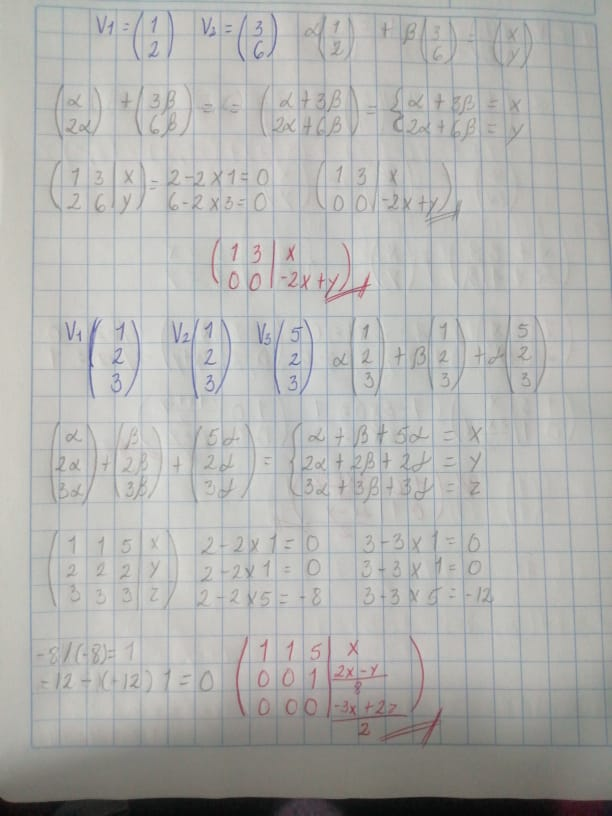 V1 = (1 2) V2 = (3 6) α(1 2) + β(3 6) = (x y)
(α 2α) + (3β 6β) = = (α + 3β 2α + 6β) = {α + 3β = x
2α + 6β = y
(1 3 | x 2 6 | y) = 2 - 2 x 1 = 0 6 - 2 x 3 = 0 (1 3 | x 0 0 | -2x + y)
(1 3 | x
0 0 | -2x + y)
V1 (1 2 3) V2 (1 2 3) V3 (5 2 3) α(1 2 3) + β(1 2 3) + γ(5 2 3)
(α 2α 3α) + (β 2β 3β) + (5γ 2γ 3γ) = {α + β + 5γ = x
2α + 2β + 2γ = y
3α + 3β + 3γ = z
(1 1 5 | x 2 - 2 x 1 = 0 3 - 3 x 1 = 0
2 2 2 | y 2 - 2 x 1 = 0 3 - 3 x 1 = 0
3 3 3 | z) 2 - 2 x 5 = -8 3 - 3 x 5 = -12
-8 / (-8) = 1
-12 - (-12) 1 = 0
(1 1 5 | x
0 0 1 | 2x - y / 8
0 0 0 | -3x + 2z / 2)